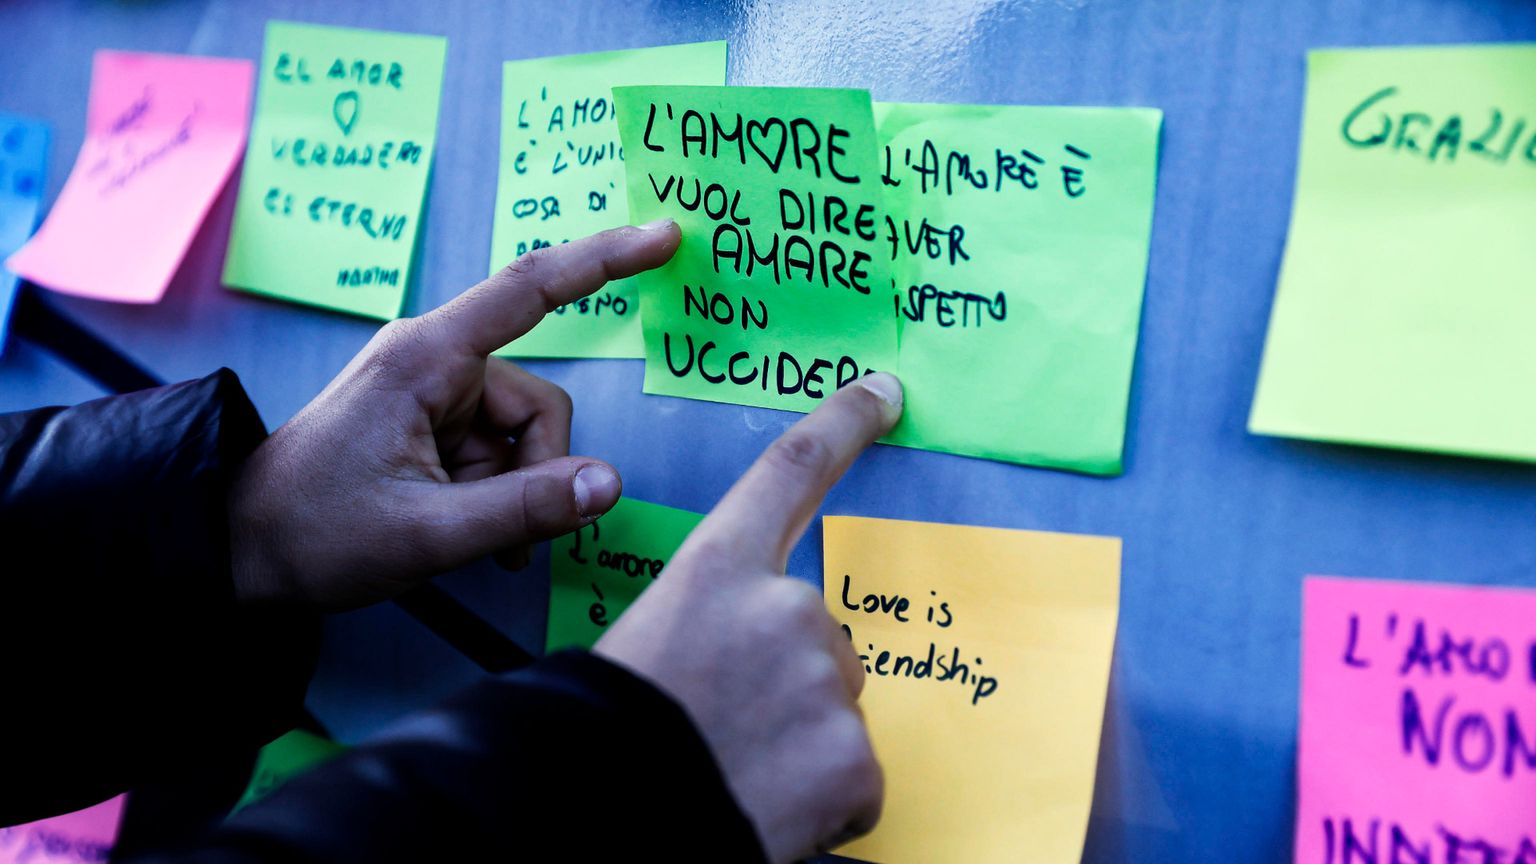 EL AMOR
VERDADERO
ES ETERNO
MARTINA
L'AMO
È L'UNIC
COSA DI
L'AMORE
VUOL DIRE
AMARE
NON
UCCIDER
L'AMORÈ È
AVER
ISPETTO
GRAZIE
L'amore
è
Love is
friendship
L'AMO
NON